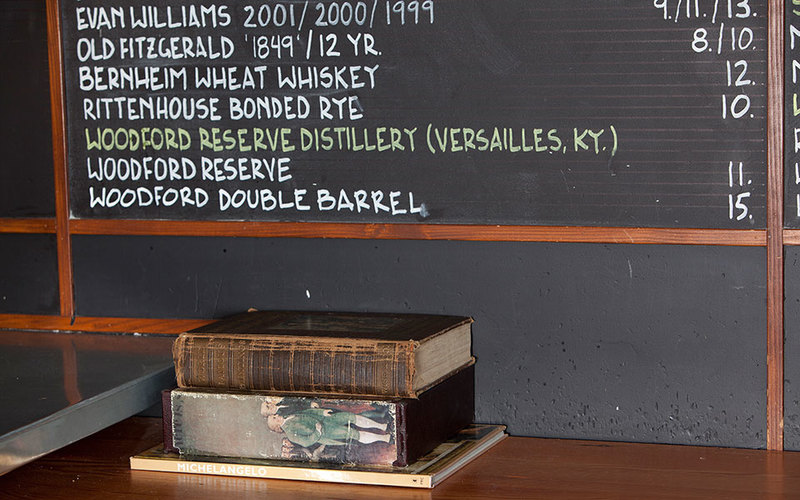 EVAN WILLIAMS 2001/2000/1999 9./11./13.
OLD FITZGERALD '1849'/12 YR. 8./10.
BERNHEIM WHEAT WHISKEY 12.
RITTENHOUSE BONDED RYE 10.
WOODFORD RESERVE DISTILLERY (VERSAILLES, KY.)
WOODFORD RESERVE 11.
WOODFORD DOUBLE BARREL 15.
MICHELANGELO